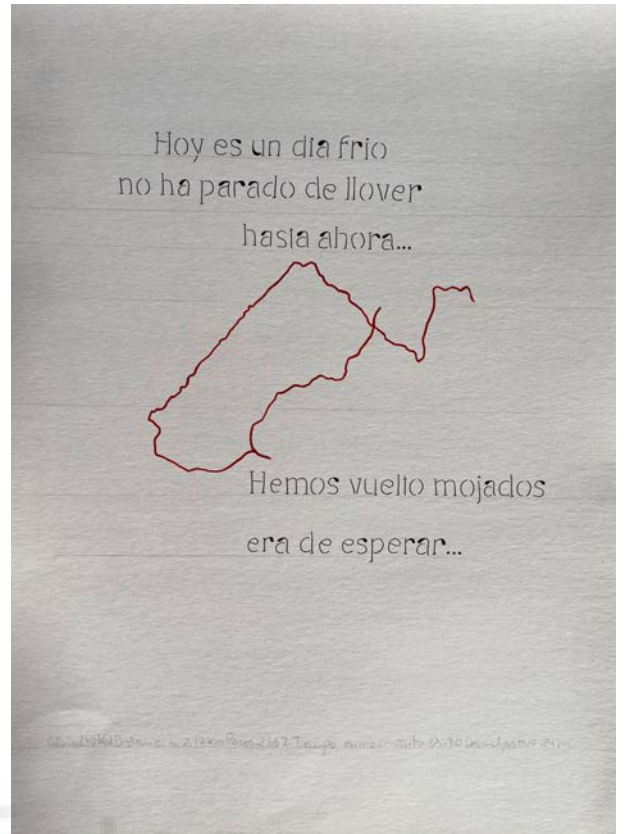 Hoy es un dia frio
no ha parado de llover
hasta ahora...
Hemos vuelto mojados
era de esperar...